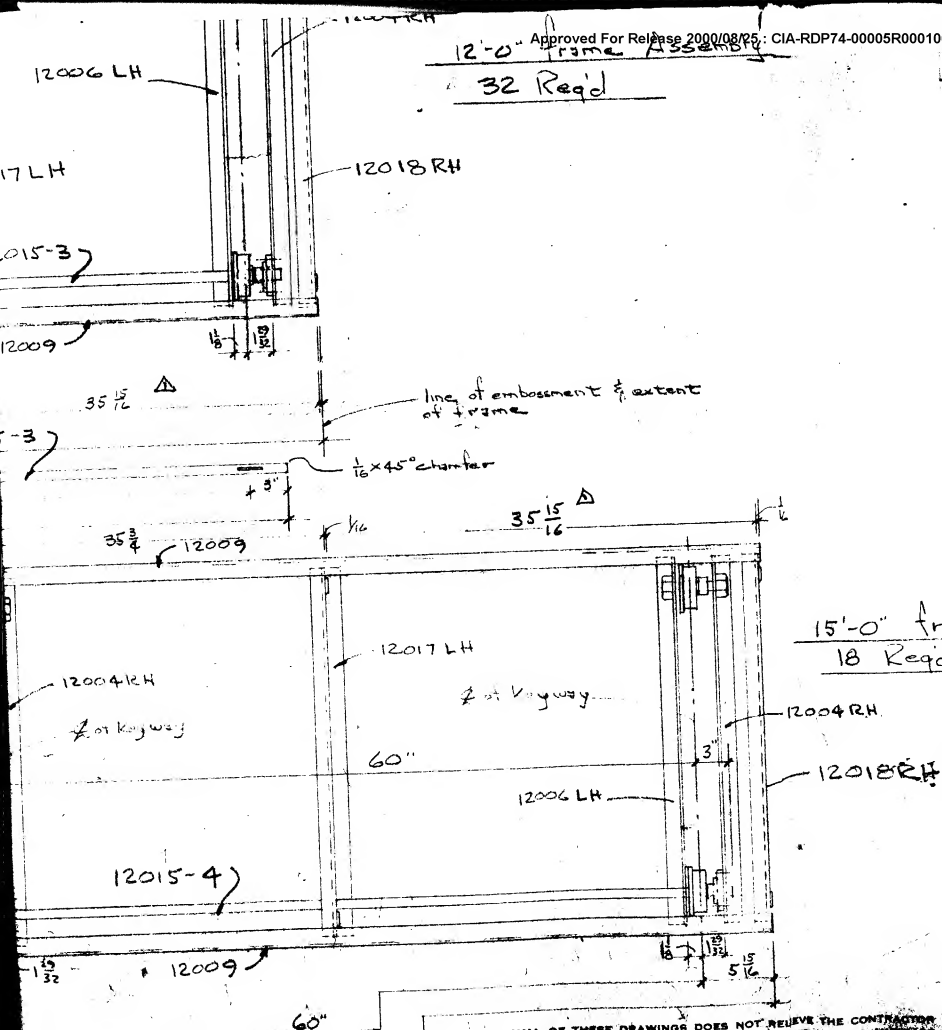 Approved For Release 2000/08/25 : CIA-RDP74-00005R00010
12'-0" frame Assembly
32 Req'd
12006 LH
17 LH
12018 RH
015-3
12009
1 1/8
1 29/32
35 15/16
line of embossment & extent
of frame
-3
1/16 x 45° chamfer
3"
35 3/4
12009
1/16
35 15/16
1/16
15'-0" fr
18 Req'd
12017 LH
12004 RH
℄ of keyway
℄ of keyway
12004 RH
60"
3"
12018 RH
12006 LH
12015-4
1 29/32
12009
1 1/8
1 29/32
5 15/16
60"
OF THESE DRAWINGS DOES NOT RELIEVE THE CONTRACTOR